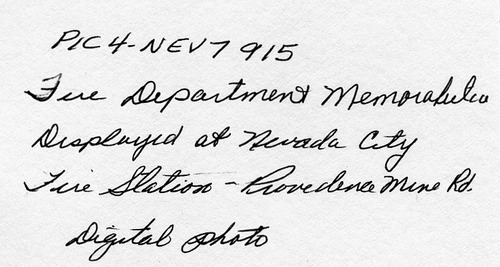 PIC 4-NEV 7 915
Fire Department Memorabilia
Displayed at Nevada City
Fire Station - Providence Mine Rd.
Digital photo